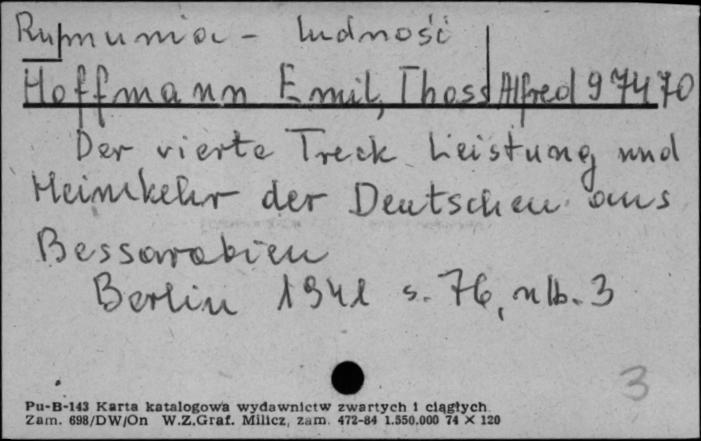 Rumunia - ludność
Hoffmann Emil, Thoss Alfred 97470
Der vierte Treck Leistung und
Heimkehr der Deutschen aus
Bessarabien
Berlin 1941 s. 76, nlb. 3
3
Pu-B-143 Karta katalogowa wydawnictw zwartych i ciągłych
Zam. 698/DW/On W.Z.Graf. Milicz, zam. 472-84 1.550.000 74 × 120